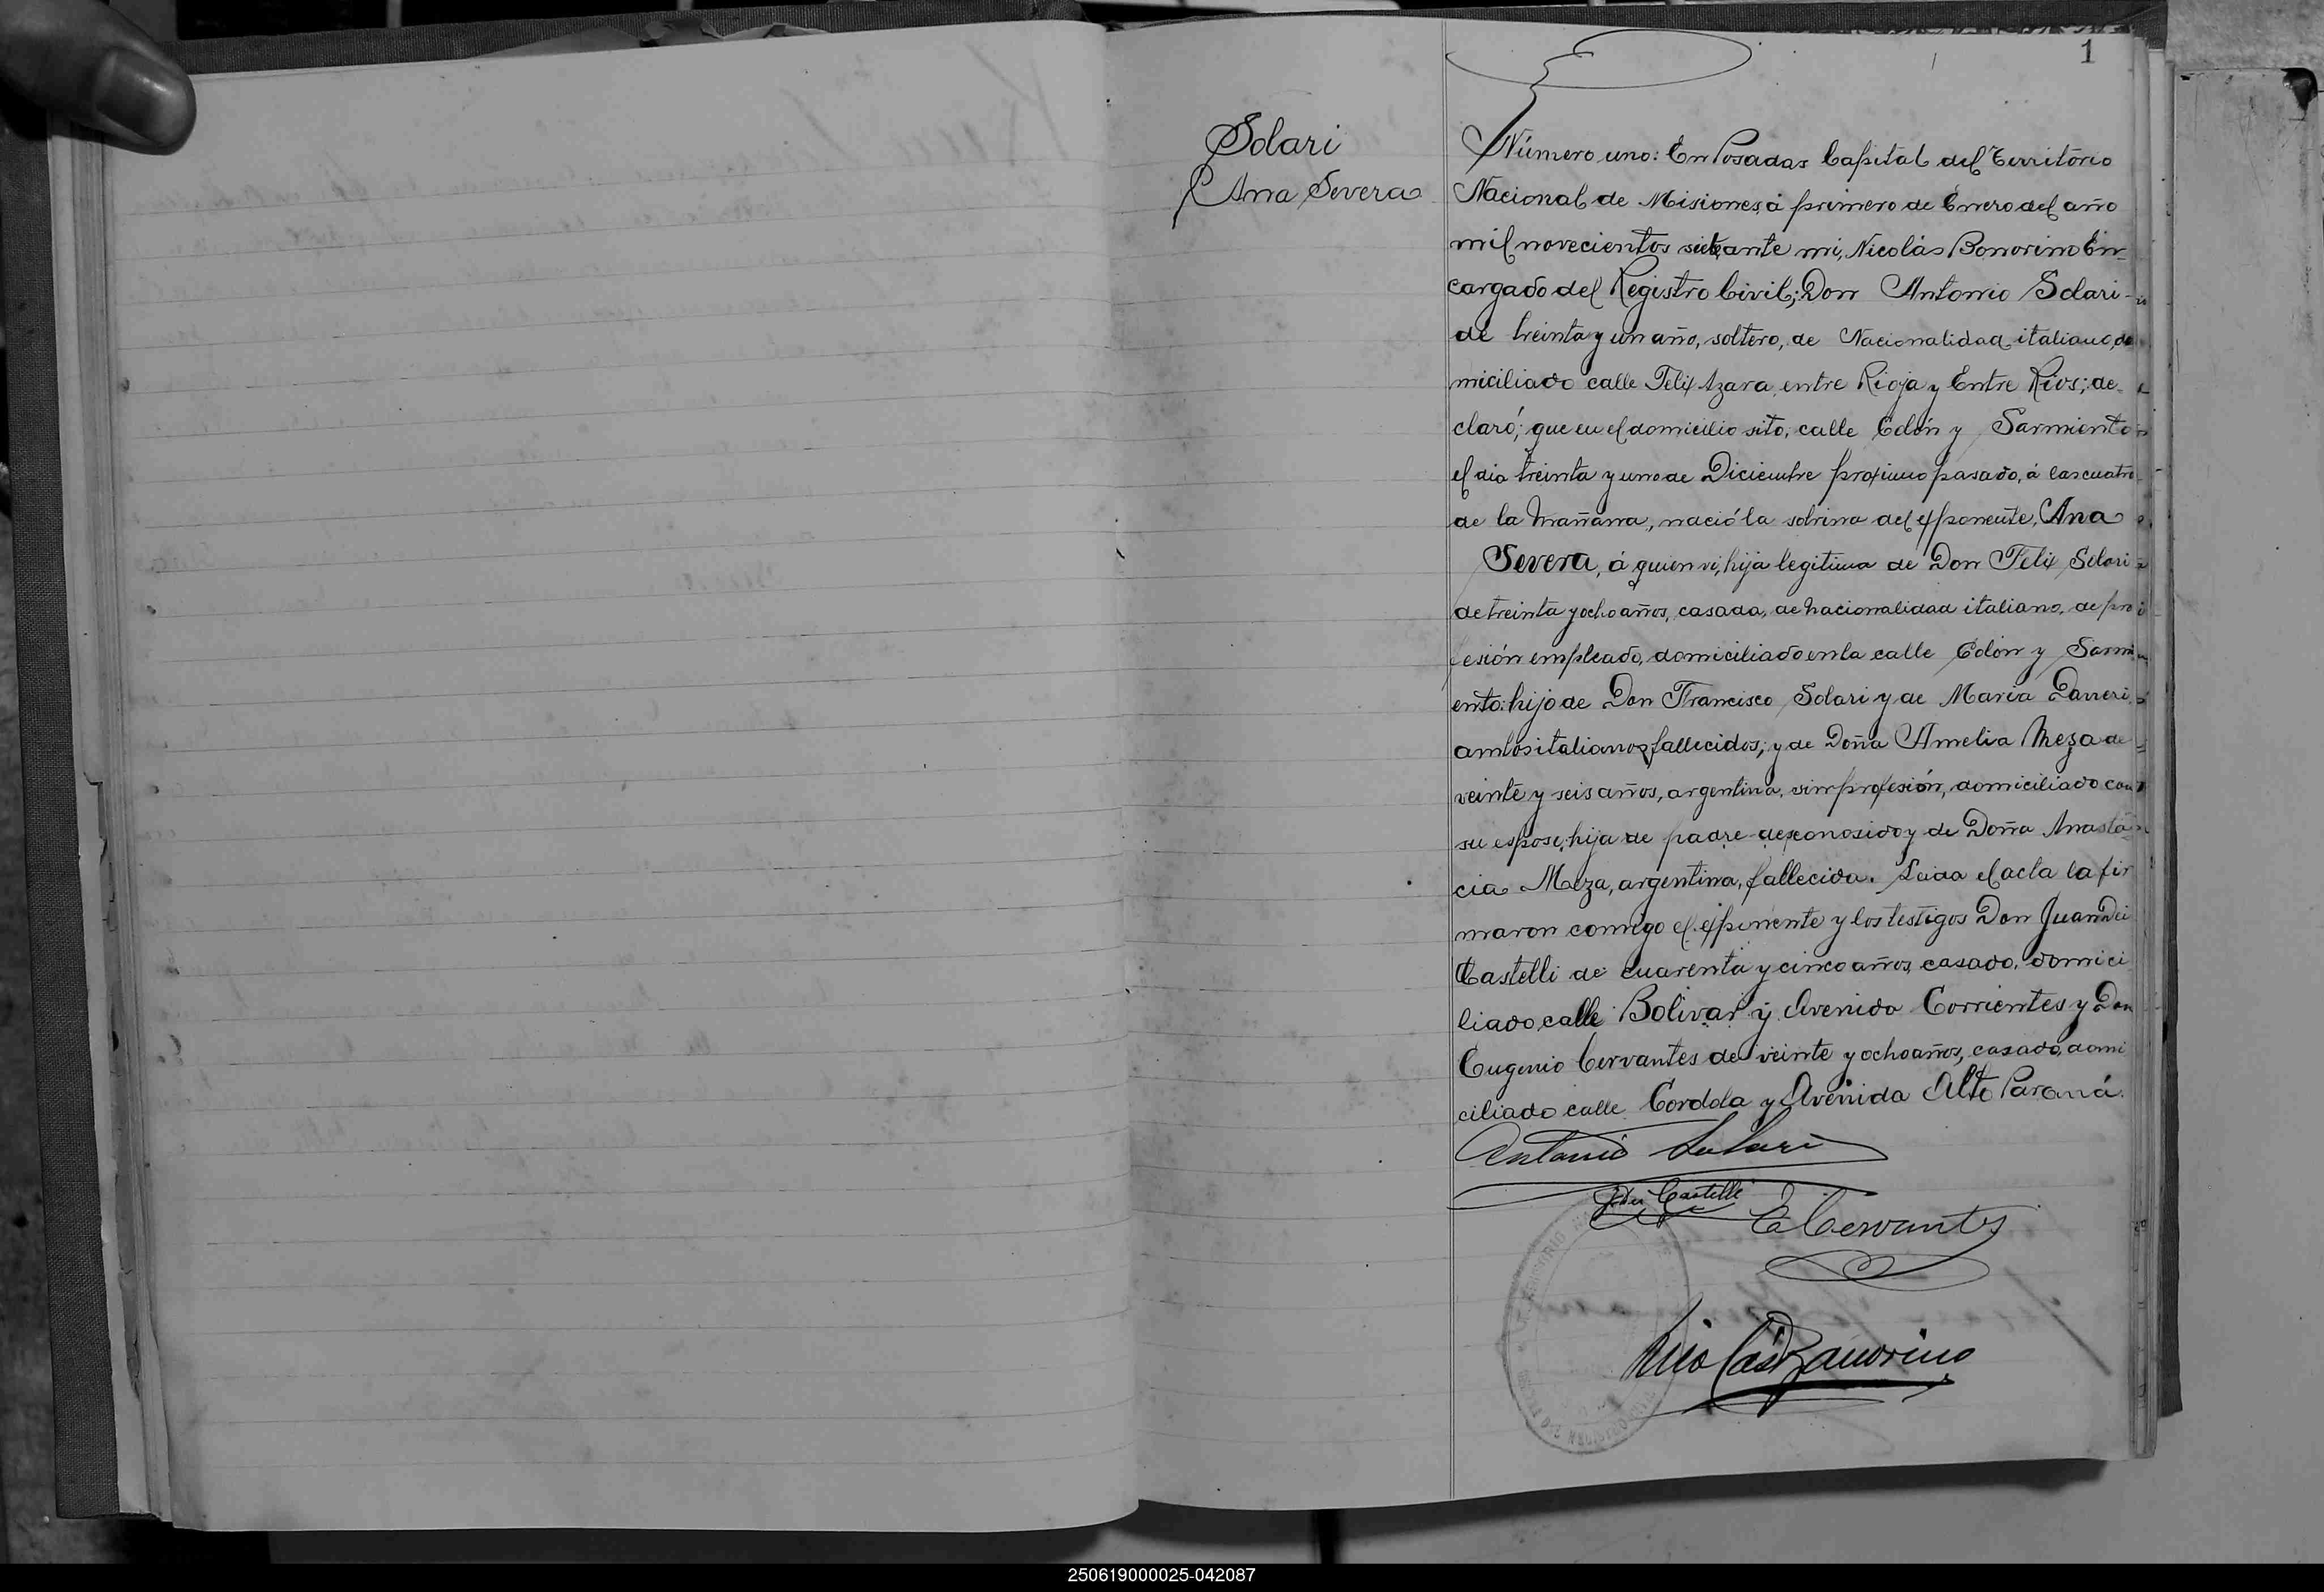 1
Solari
Ana Severa
Número uno: En Posadas Capital del Territorio
Nacional de Misiones, á primero de Enero del año
mil novecientos siete, ante mi, Nicolás Bonorino En-
cargado del Registro Civil; Don Antonio Solari
de treinta y un año, soltero, de Nacionalidad italiano, do
miciliado calle Felix Azara entre Rioja y Entre Rios; de-
claró; que en el domicilio sito, calle Colón y Sarmiento
el dia treinta y uno de Diciembre proximo pasado, á las cuatro
de la mañana, nació la sobrina del exponente, Ana
Severa, á quien vi, hija legitima de Don Felix Solari
de treinta y ocho años, casada, de nacionalidad italiano, de pro
fesión empleado, domiciliado en la calle Colón y Sarmi
ento: hijo de Don Francisco Solari y de Maria Daneri
ambos italianos fallecidos; y de Doña Amelia Meza de
veinte y seis años, argentina, sin profesión, domiciliado con
su esposo, hija de padre desconosido y de Doña Anasta
cia Meza, argentina, fallecida. Leida el acta la fir
maron conmigo el exponente y los testigos Don Juan Dei
Castelli de cuarenta y cinco años, casado, domici
liado, calle Bolivar y Avenida Corrientes y Don
Eugenio Cervantes de veinte y ocho años, casado, domi
ciliado calle Cordoba y Avenida Alto Paraná.
Antonio Solari
J Dei Castelli
E Cervantes
Nicolás Bonorino
250619000025-042087